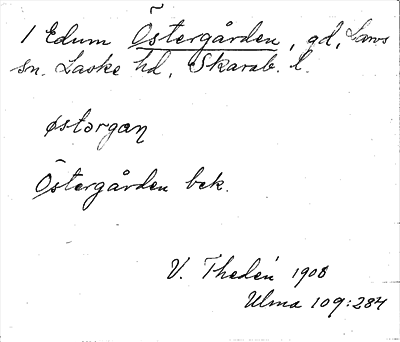 1 Edum Östergården, gd, Larvs
sn. Laske hd, Skarab. l.
østargan
Östergården bek.
V. Thedén 1908
Ulma 109:284